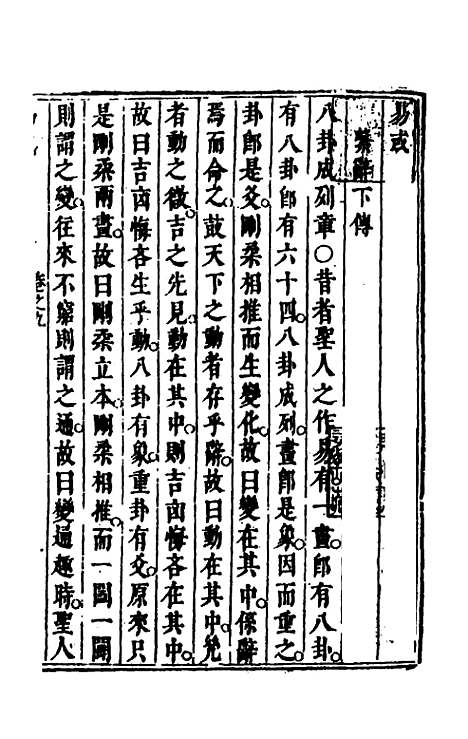 易或
繫辭下傳
八卦成列章○昔者聖人之作易有一畫卽有八卦
有八卦卽有六十四八卦成列畫卽是象因而重之
卦卽是爻剛柔相推而生變化故曰變在其中係辭
焉而命之鼓天下之動者存乎辭故曰動在其中
者動之徵吉之先見動在其中則吉凶悔吝在其中
故曰吉凶悔吝生乎動八卦有象重卦有爻原來只
是剛柔兩畫故曰剛柔立本剛柔相推而一闔一闢
則謂之變往來不窮則謂之通故曰變通趣時聖人
卷之九